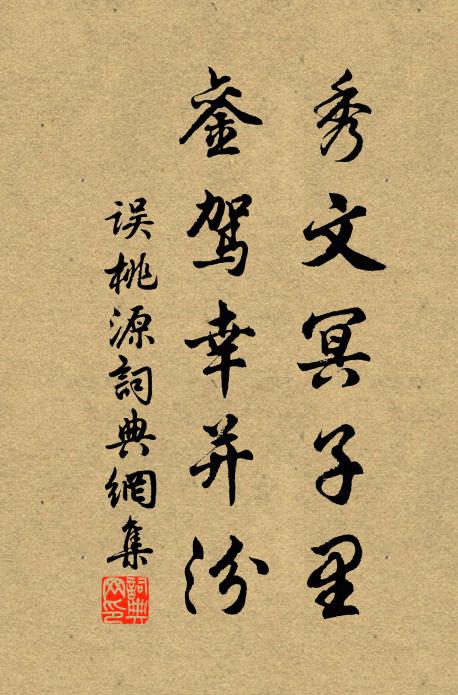 秀文冥子里
銮驾幸并汾
误桃源詞典網集
詞典
网印